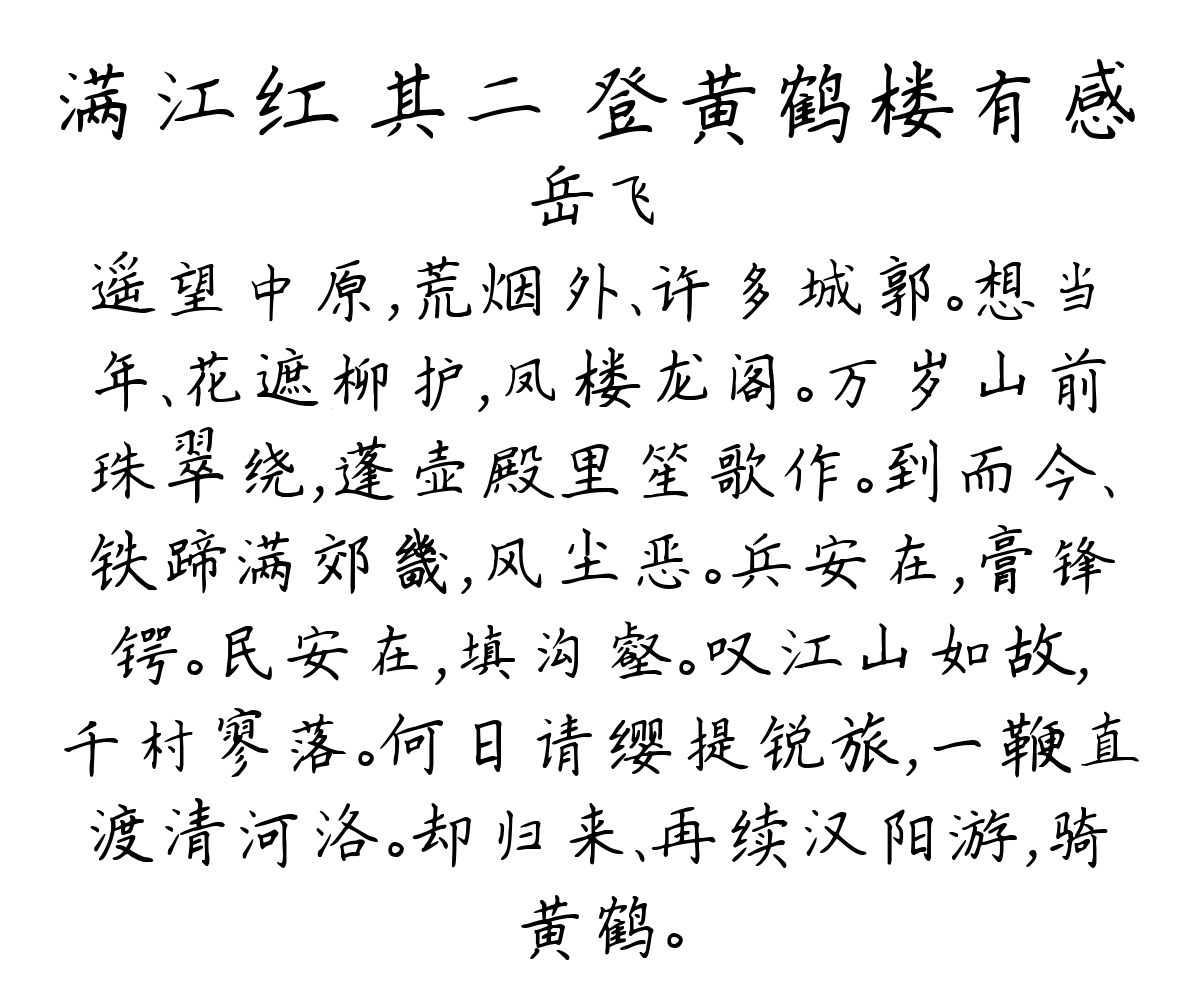 满江红 其二 登黄鹤楼有感
岳飞
遥望中原,荒烟外、许多城郭。想当
年、花遮柳护,凤楼龙阁。万岁山前
珠翠绕,蓬壶殿里笙歌作。到而今、
铁蹄满郊畿,风尘恶。兵安在,膏锋
锷。民安在,填沟壑。叹江山如故,
千村寥落。何日请缨提锐旅,一鞭直
渡清河洛。却归来、再续汉阳游,骑
黄鹤。